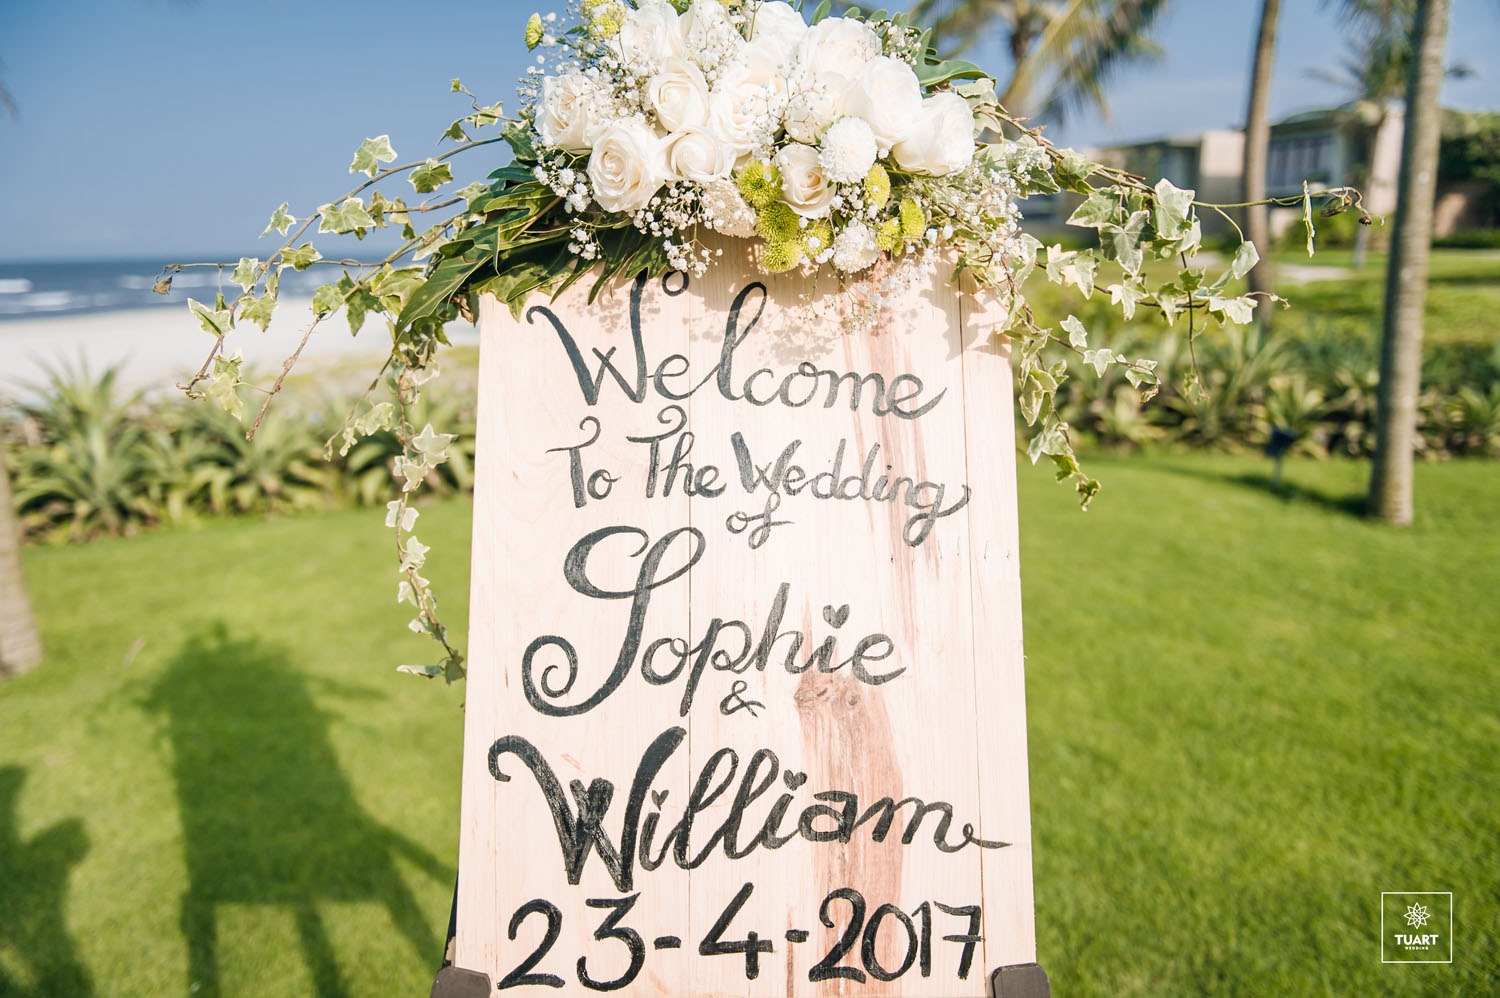 Welcome
To The Wedding
of
Sophie
&
William
23-4-2017
TUART
WEDDING